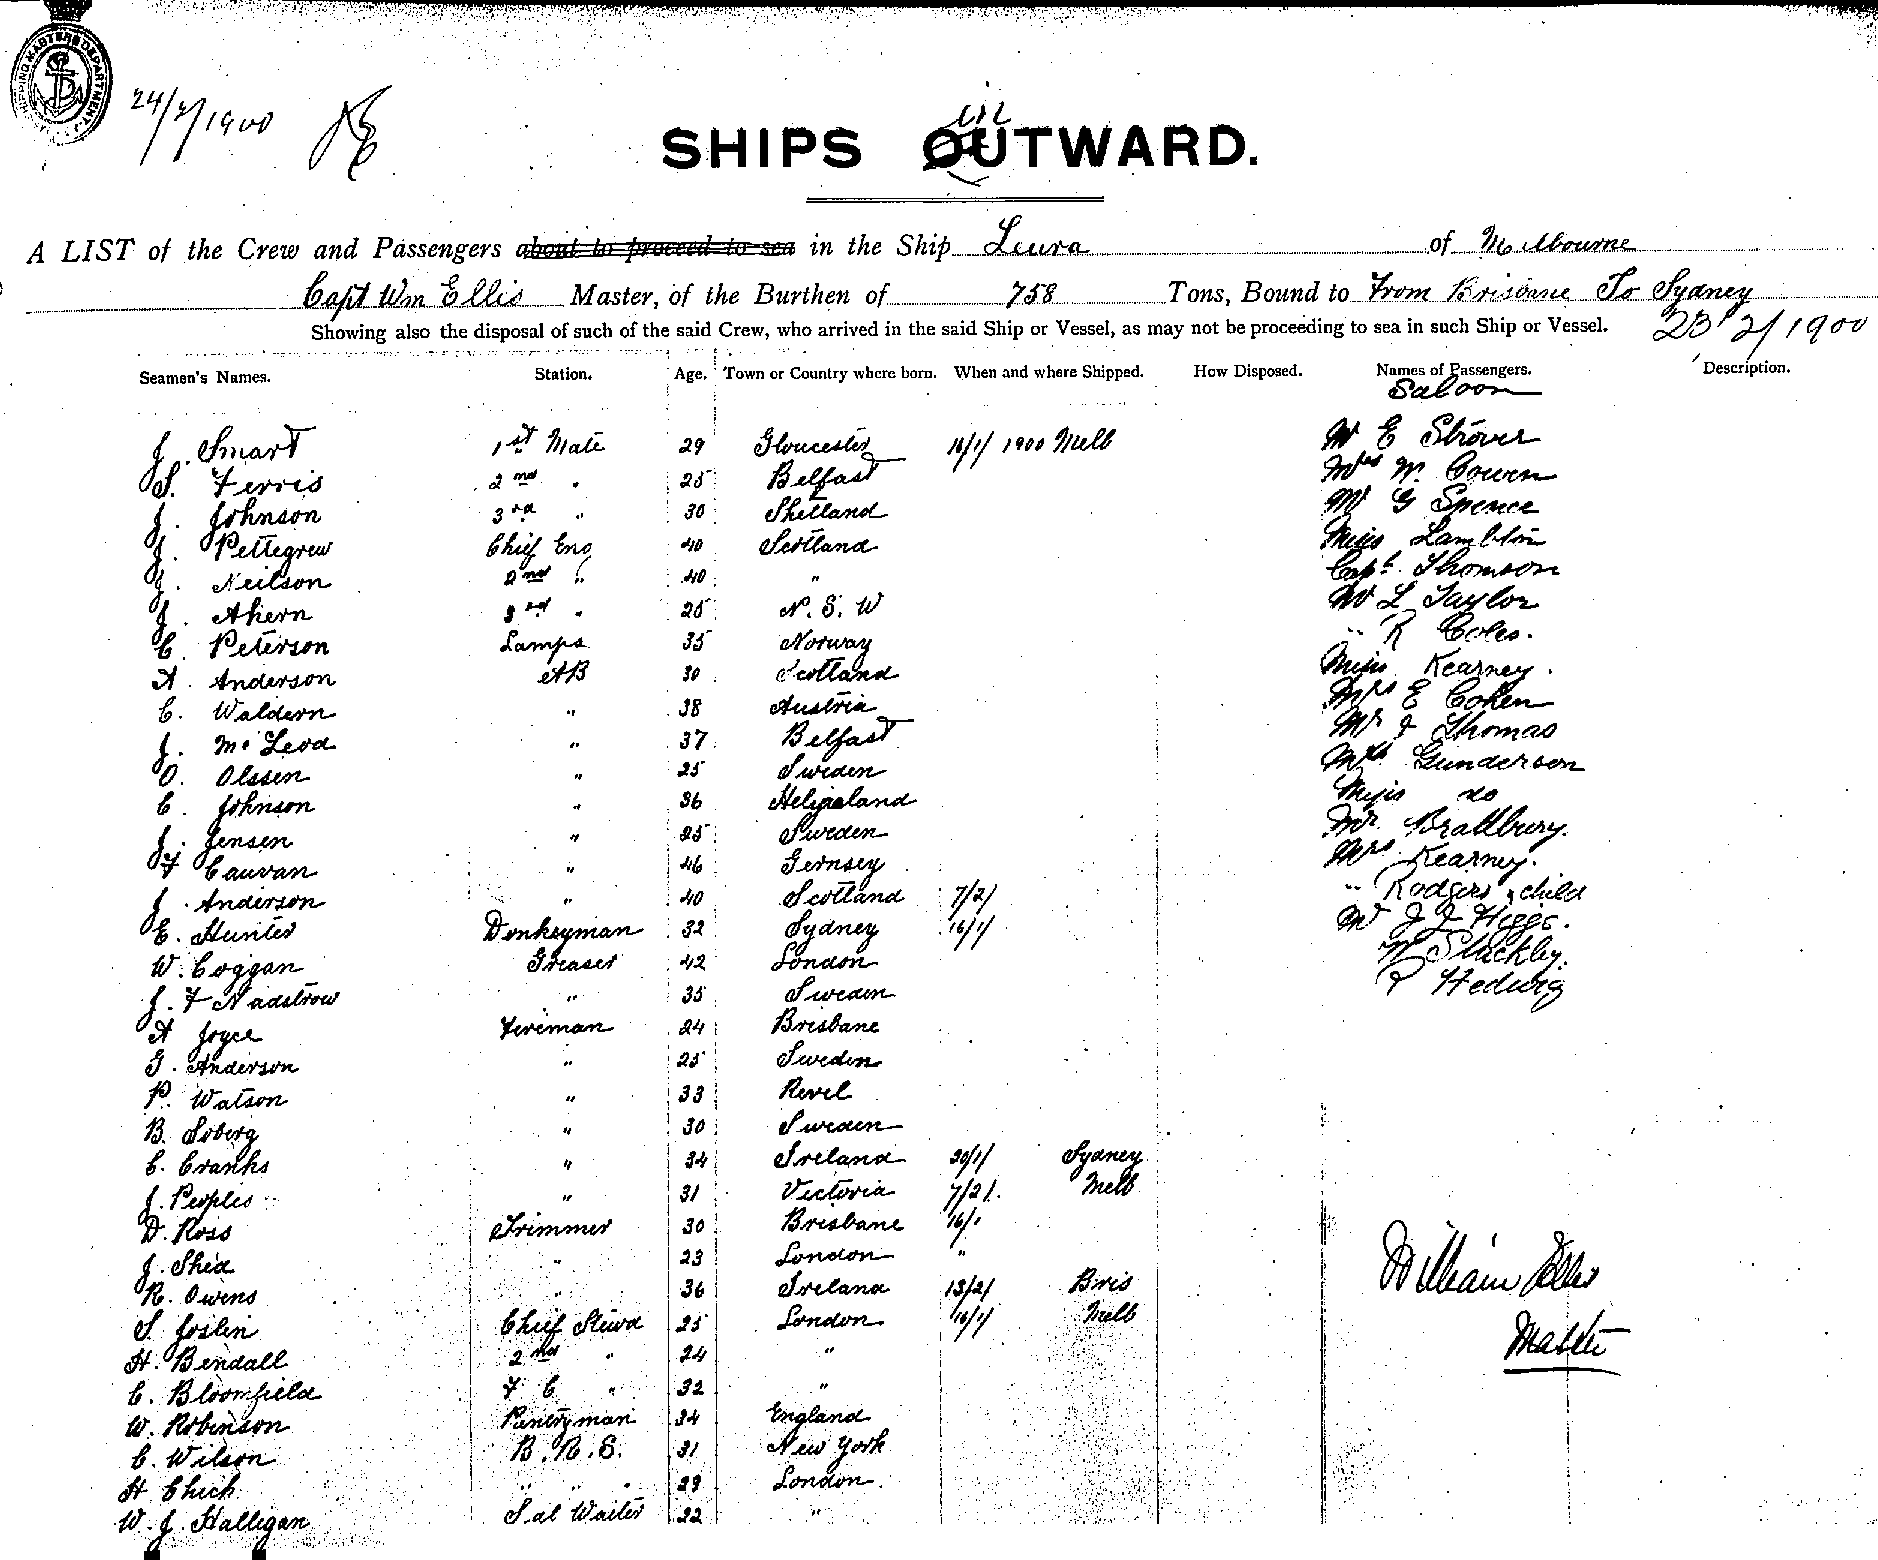 SHIPPING MASTERS DEPARTMENT
24/2/1900
SHIPS OUTWARD.
in
A LIST of the Crew and Passengers about to proceed to sea in the Ship Leura of Melbourne
Capt Wm Ellis Master, of the Burthen of 758 Tons, Bound to From Brisbane To Sydney
Showing also the disposal of such of the said Crew, who arrived in the said Ship or Vessel, as may not be proceeding to sea in such Ship or Vessel. 23/2/1900
Seamen's Names. Station. Age. Town or Country where born. When and where Shipped. How Disposed. Names of Passengers. Description.
Saloon
J. Smart 1st Mate 29 Gloucester 16/1/1900 Melb Mr E Strover
S. Ferris 2nd " 25 Belfast Mrs W. Cowen
J. Johnson 3rd " 30 Shetland Mr G Spence
J. Pettegrew Chief Eng 40 Scotland Miss Lambton
J. Neilson 2nd " 40 " Capt. Thomson
J. Ahern 3rd " 25 N. S. W Mr L Taylor
C. Peterson Lamps 35 Norway " R Coles.
A. Anderson AB 30 Scotland Miss Kearney.
C. Waldern " 38 Austria Mrs E Cohen
J. McLeod " 37 Belfast Mr J Thomas
O. Olssen " 25 Sweden Mrs Gunderson
C. Johnson " 36 Heligoland Miss do
J. Jensen " 25 Sweden Mr. Bradbury.
F Cauvan " 46 Gernsey Mrs Kearney.
J. Anderson " 40 Scotland 7/2/ " Rodgers & child
E. Hunter Donkeyman 32 Sydney 16/1/ Mr J J Higgs.
W. Coggan Greaser 42 London W Stackley.
J. F Nadstrow " 35 Sweden P Hedwig
A Joyce Fireman 24 Brisbane
G. Anderson " 25 Sweden
P. Watson " 33 Revel
B. Soberg " 30 Sweden
C. Cranks " 34 Ireland 20/1/ Sydney
J. Peoples " 31 Victoria 7/2/. Melb
D. Ross Trimmer 30 Brisbane 16/1
J. Shea " 23 London "
R. Owens " 36 Ireland 13/2/ Bris
S. Joslin Chief Stewd 25 London 16/1/ Melb
H. Bendall 2nd " 24 "
C. Bloomfield F C " 32 "
W. Robinson Pantryman 34 England
C. Wilson B. R. S. 31 New York
H Chick " " " 29 London.
W. J. Halligan Sal Waiter 22 "
William Ellis
Master